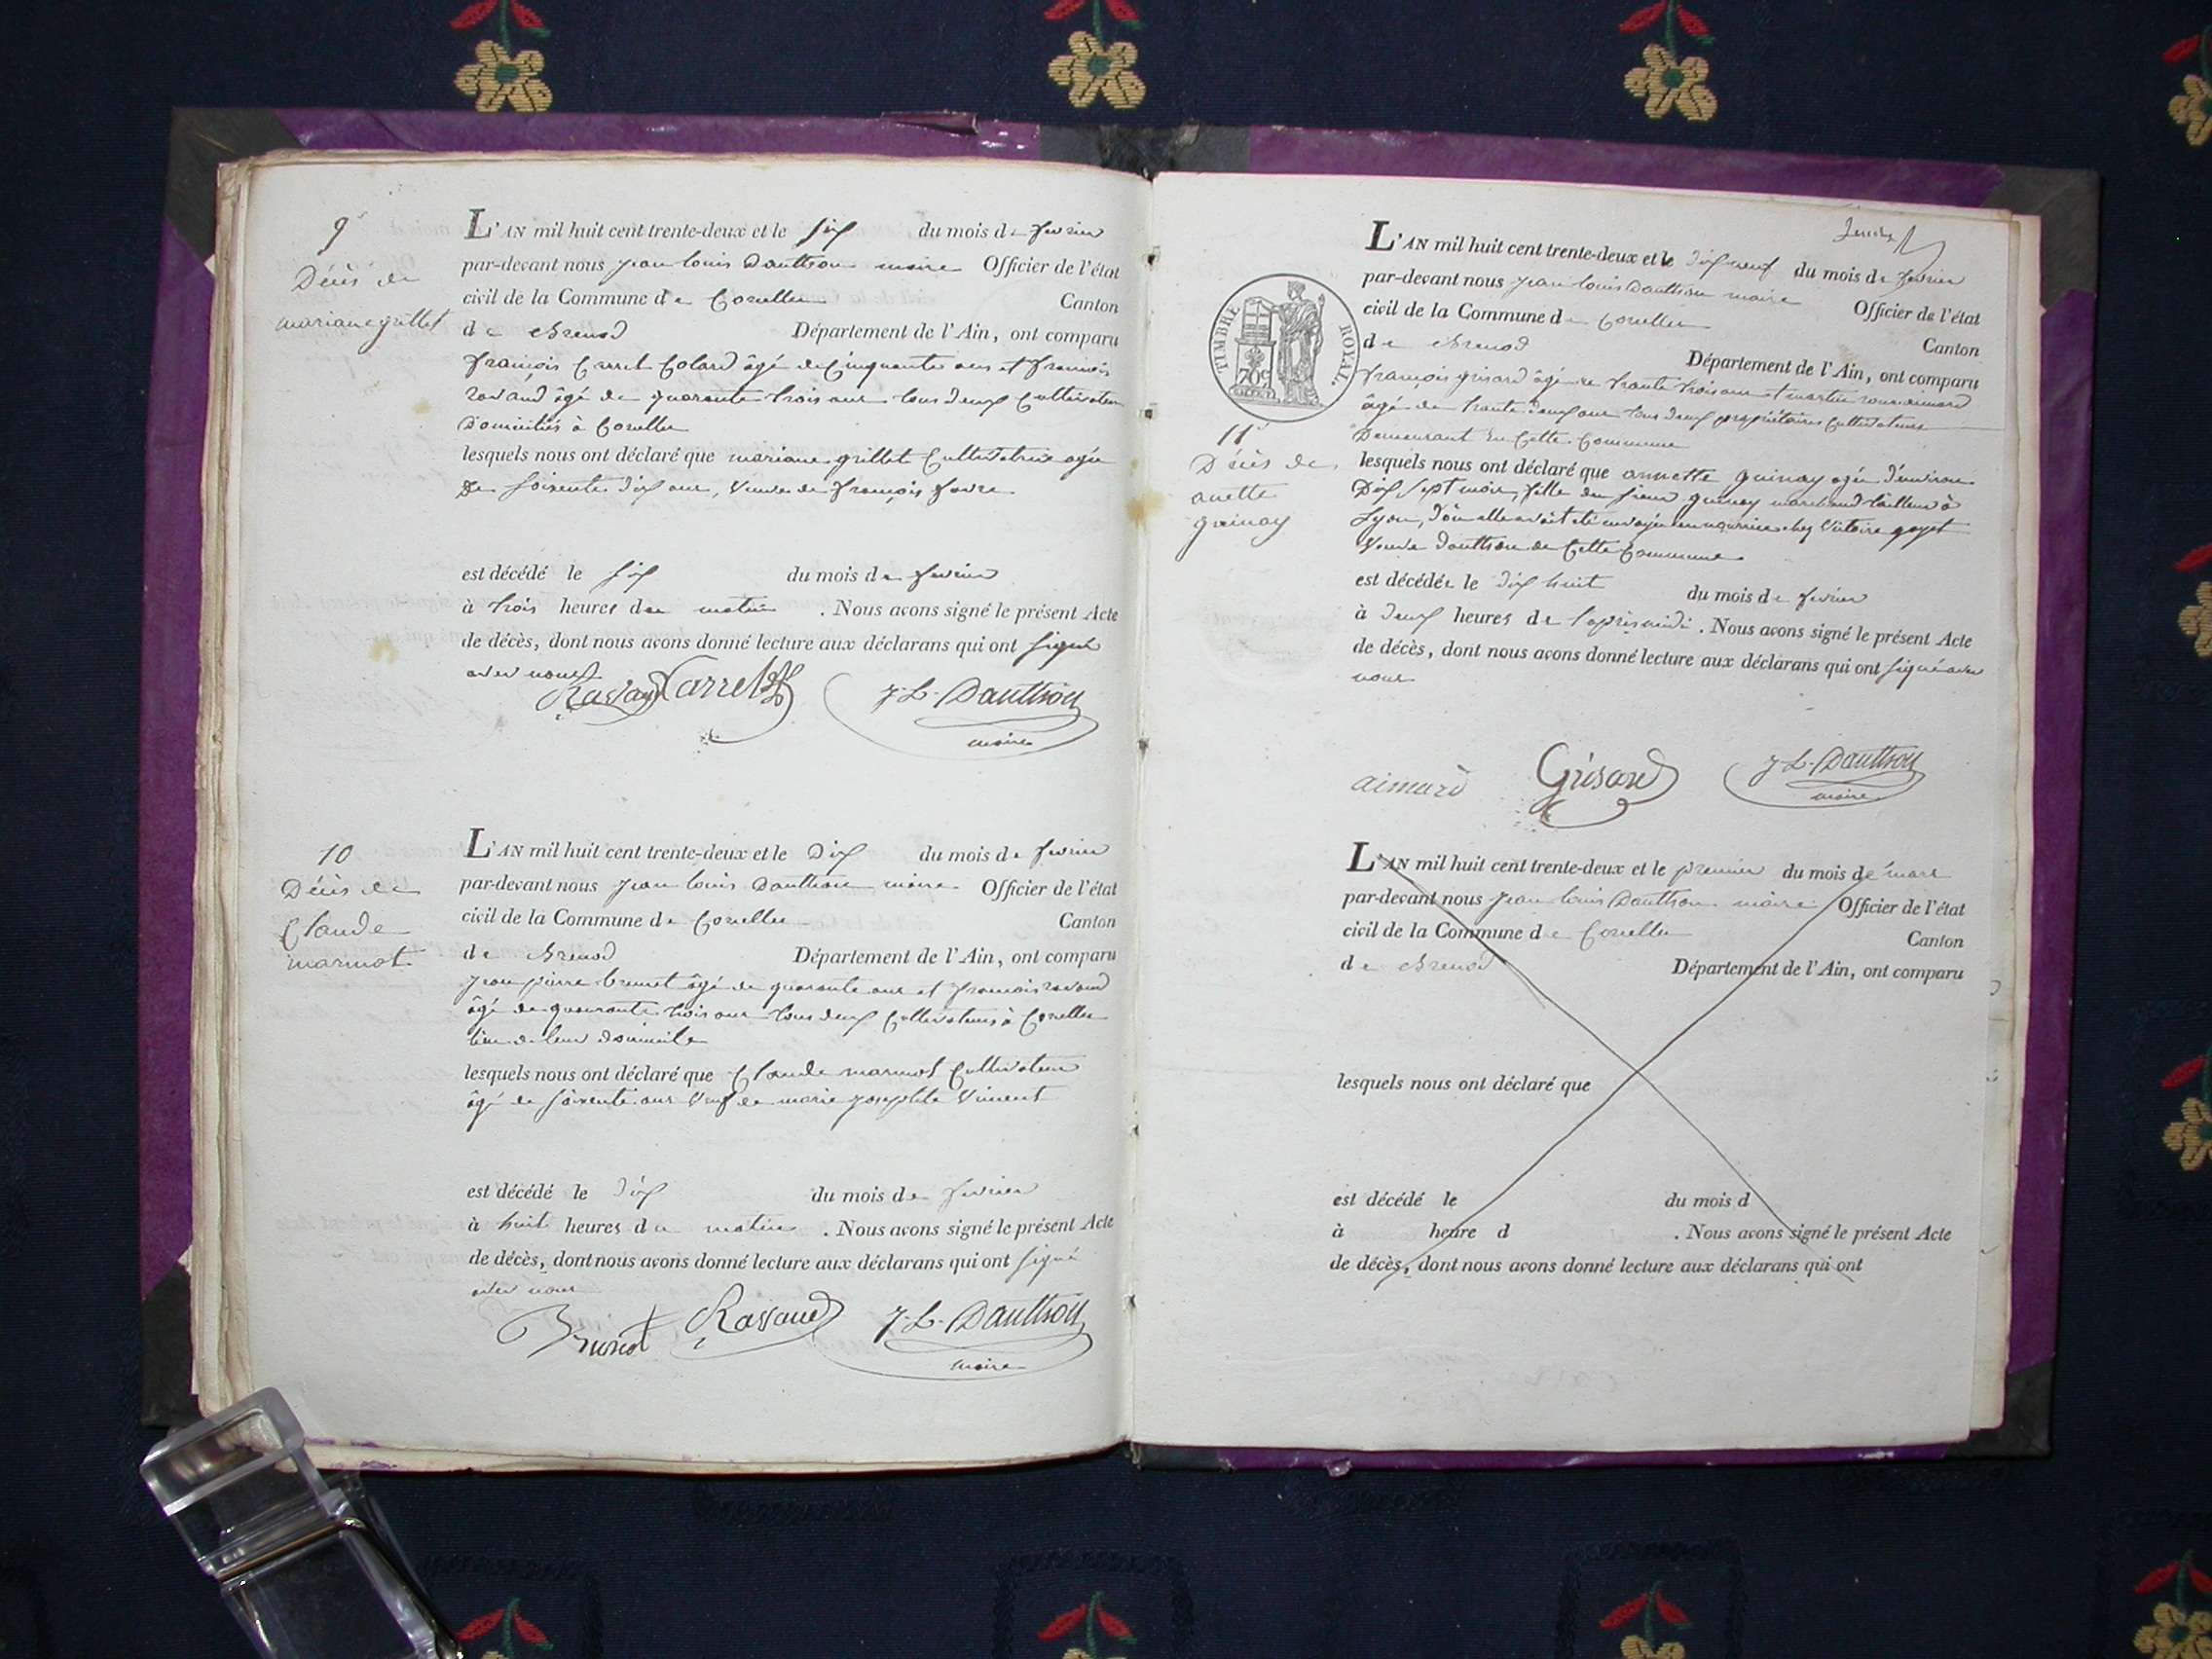 9e
Décès de
mariane grillet
L'AN mil huit cent trente-deux et le six du mois de fevrier
par-devant nous jean louis Dauthion maire Officier de l'état
civil de la Commune de Corcelles Canton
de Brenod Département de l'Ain, ont comparu
françois Carret Colard âgé de Cinquante ans et françois
ravaud âgé de quarante trois ans tous deux Cultivateurs
Domiciliés à Corcelles
lesquels nous ont déclaré que mariane grillet Cultivatrice agée
De soixante dix ans, veuve de françois favre
est décédé le six du mois de fevrier
à trois heures du matin . Nous avons signé le présent Acte
de décès, dont nous avons donné lecture aux déclarans qui ont signé
avec nous
Ravaud Carret J. L. Dauthion
maire
10
Décès de
Claude
marmot
L'AN mil huit cent trente-deux et le Dix du mois de fevrier
par-devant nous jean louis Dauthion maire Officier de l'état
civil de la Commune de Corcelles Canton
de Brenod Département de l'Ain, ont comparu
jean pierre brunet âgé de quarante ans et francois ravaud
âgé de quarante trois ans tous deux Cultivateurs à Corcelles
lieu de leur domicile
lesquels nous ont déclaré que Claude marmot Cultivateur
âgé de soixante ans veuf de marie josephte Vincent
est décédé le dix du mois de fevrier
à huit heures du matin . Nous avons signé le présent Acte
de décès, dont nous avons donné lecture aux déclarans qui ont signé
avec nous
Brunet Ravaud J. L. Dauthion
maire
TIMBRE ROYAL
70c
11e
Décès de
anette
guinay
L'AN mil huit cent trente-deux et le dix neuf du mois de fevrier
par-devant nous jean louis Dauthion maire Officier de l'état
civil de la Commune de Corcelles Canton
de Brenod Département de l'Ain, ont comparu
françois grisard âgé de trante trois ans et martin aimard
âgé de trante deux ans tous deux propriétaires Cultivateurs
Demeurant en Cette Commune
lesquels nous ont déclaré que annette guinay agée d'environ
Dix sept mois, fille du sieur guinay marchand tailleur à
Lyon, d'ou elle avoit été envoyée en nourrice chez Victoire goyet
Veuve Dauthion de Cette Commune
est décédée le dix huit du mois de fevrier
à deux heures de l'après midi . Nous avons signé le présent Acte
de décès, dont nous avons donné lecture aux déclarans qui ont signé avec
nous
aimard Grisard J. L. Dauthion
maire
L'AN mil huit cent trente-deux et le premier du mois de mars
par-devant nous jean louis Dauthion maire Officier de l'état
civil de la Commune de Corcelles Canton
de Brenod Département de l'Ain, ont comparu
lesquels nous ont déclaré que
est décédé le du mois d
à heure d . Nous avons signé le présent Acte
de décès, dont nous avons donné lecture aux déclarans qui ont